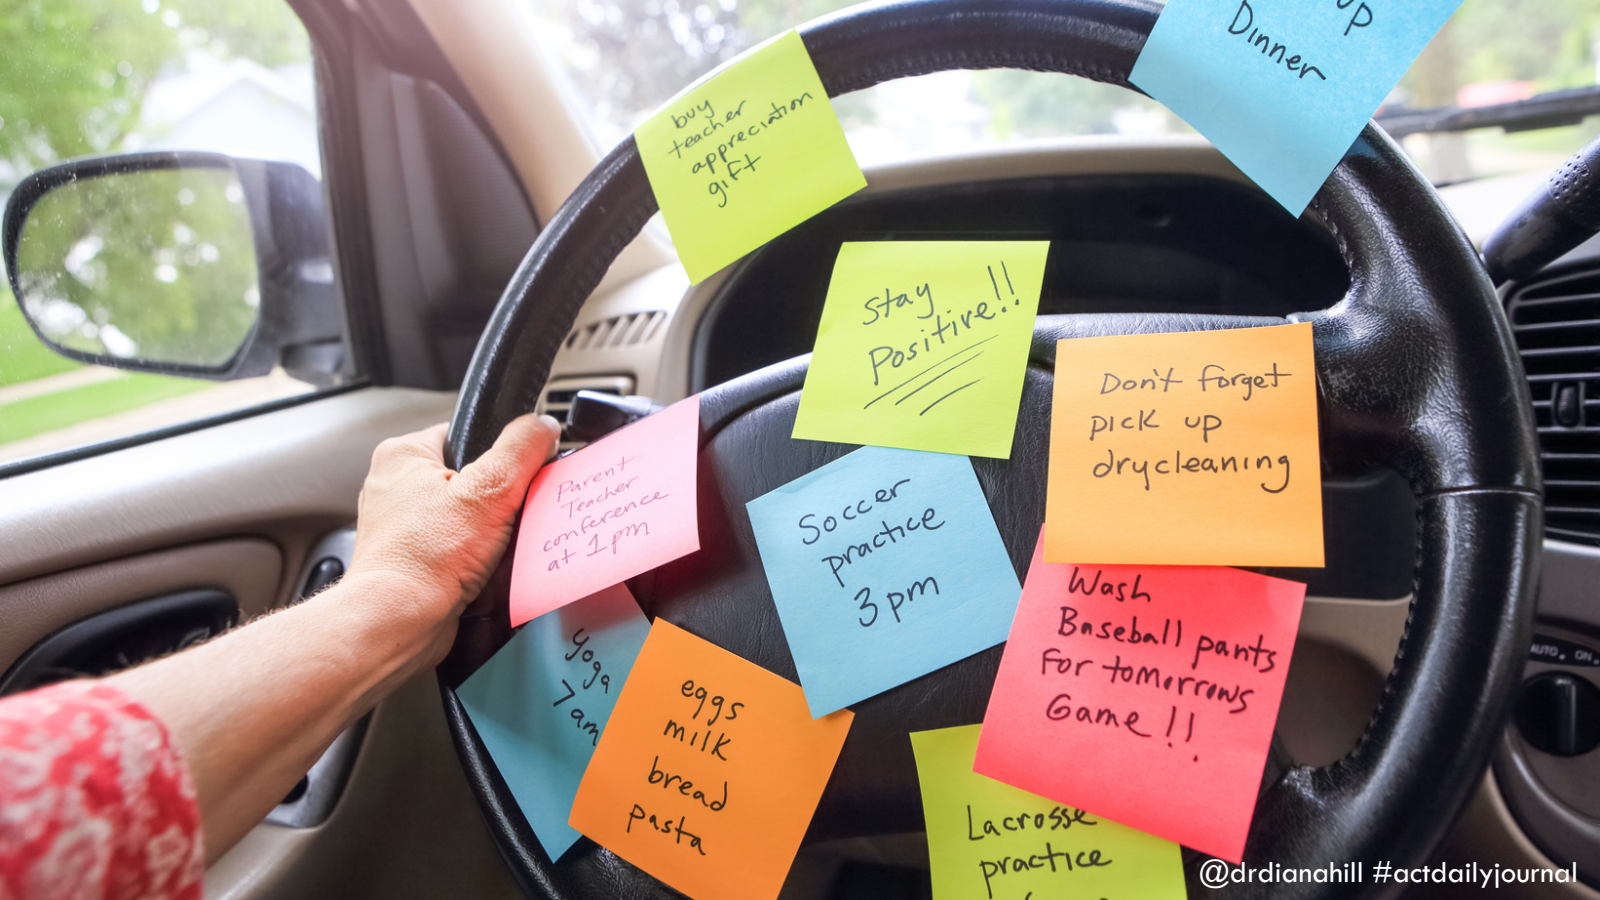 up
Dinner
buy
teacher
appreciation
gift
Stay
Positive!!
Don't forget
pick up
drycleaning
Parent
Teacher
conference
at 1pm
Soccer
practice
3pm
Wash
Baseball pants
for tomorrows
Game!!
Yoga
7am
eggs
milk
bread
pasta
Lacrosse
practice
AUTO. ON.
@drdianahill #actdailyjournal